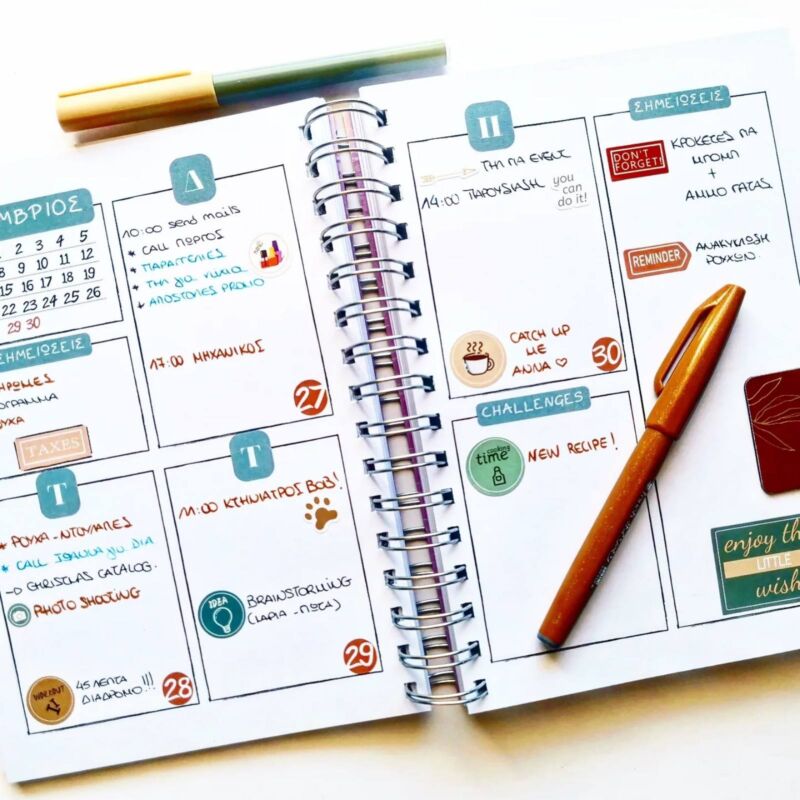 ΜΒΡΙΟΣ
2 3 4 5
8 9 10 11 12
15 16 17 18 19
22 23 24 25 26
29 30
ΣΗΜΕΙΩΣΕΙΣ
TAXES
Δ
10:00 send mails
* CALL ΓΙΩΡΓΟΣ
* ΠΑΡΑΓΓΕΛΙΕΣ
* ΤΗΛ για
* ΑΠΟΣΤΟΛΕΣ PROMO
17:00 ΜΗΧΑΝΙΚΟΣ
27
Τ
* ΡΟΥΧΑ - ΝΤΟΥΛΑΠΕΣ
* CALL ΙΩΑΝΝΑ για ΔΙΑ
CATALOG.
PHOTO SHOOTING
WORKOUT
45 ΛΕΠΤΑ
ΔΙΑΔΡΟΜΟ!!!
28
Τ
11:00 ΚΤΗΝΙΑΤΡΟΣ ΒΟΒ!
IDEA
BRAINSTORMING
29
Π
ΤΗΛ ΓΙΑ EVENT
14:00 ΠΑΡΟΥΣΙΑΣΗ
you
can
do it!
CATCH UP
ΜΕ
ΑΝΝΑ ♡
30
CHALLENGES
cooking
time
NEW RECIPE!
ΣΗΜΕΙΩΣΕΙΣ
DON'T
FORGET!
ΚΡΟΚΕΤΕΣ ΓΙΑ
ΜΠΟΜΠ
+
ΑΜΜΟ ΓΑΤΑΣ
REMINDER
ΑΝΑΚΥΚΛΩΣΗ
ΡΟΥΧΩΝ
enjoy the
LITTLE
wish